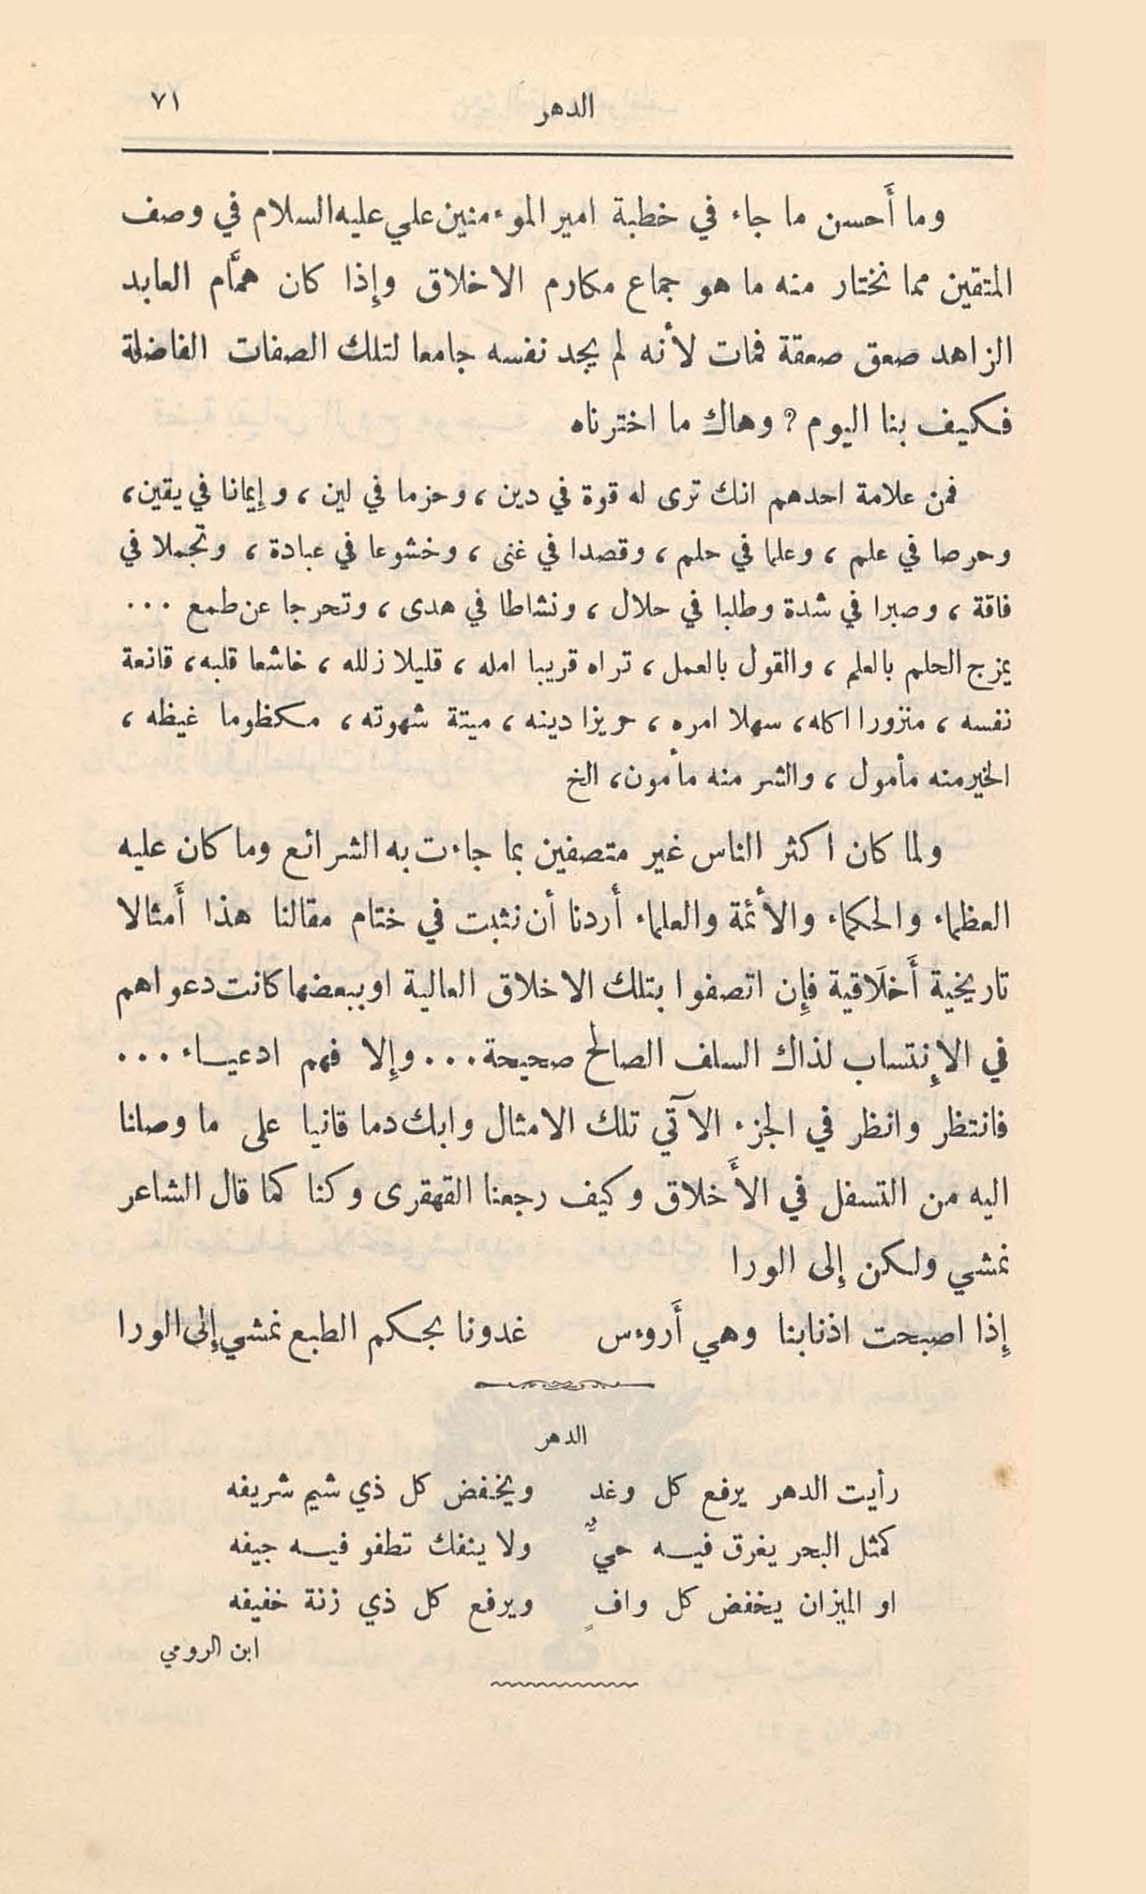 الدهر ٧١
وما أَحسن ما جاء في خطبة امير الموءمنين علي عليه السلام في وصف
المتقين مما نختار منه ما هو جماع مكارم الاخلاق وإذا كان همَّام العابد
الزاهد صعق صعقة فمات لأنه لم يجد نفسه جامعا لتلك الصفات الفاضلة
فكيف بنا اليوم ? وهاك ما اخترناه
فمن علامة احدهم انك ترى له قوة في دين ، وحزما في لين ، وإيمانا في يقين،
وحرصا في علم ، وعلما في حلم ، وقصدا في غنى ، وخشوعا في عبادة ، وتجملا في
فاقة ، وصبرا في شدة وطلبا في حلال ، ونشاطا في هدى ، وتحرجا عن طمع ...
يمزج الحلم بالعلم ، والقول بالعمل ، تراه قريبا امله ، قليلا زلله ، خاشعا قلبه، قانعة
نفسه ، منزورا اكله، سهلا امره ، حريزا دينه ، ميتة شهوته، مكظوما غيظه ،
الخير منه مأمول ، والشر منه مأمون، الخ
ولما كان اكثر الناس غير متصفين بما جاءت به الشرائع وما كان عليه
العظماء والحكماء والأئمة والعلماء أردنا أن نثبت في ختام مقالنا هذا أَمثالا
تاريخية أَخلَاقية فإِن اتصفوا بتلك الاخلاق العالية او ببعضها كانت دعواهم
في الاِنتساب لذاك السلف الصالح صحيحة... وإِلا فهم ادعياء ...
فانتظر وانظر في الجزء الآتي تلك الامثال وابك دما قانيا على ما وصلنا
اليه من التسفل في الأَخلاق وكيف رجعنا القهقرى وكنا كما قال الشاعر
نمشي ولكن إِلى الورا
إِذا اصبحت اذنابنا وهي أَروءس غدونا بحكم الطبع نمشي إِلى الورا
الدهر
رأيت الدهر يرفع كل وغد ويخفض كل ذي شيم شريفه
كمثل البحر يغرق فيه حيٌّ ولا ينفك تطفو فيه جيفه
او الميزان يخفض كل وافٍ ويرفع كل ذي زنة خفيفه
ابن الرومي